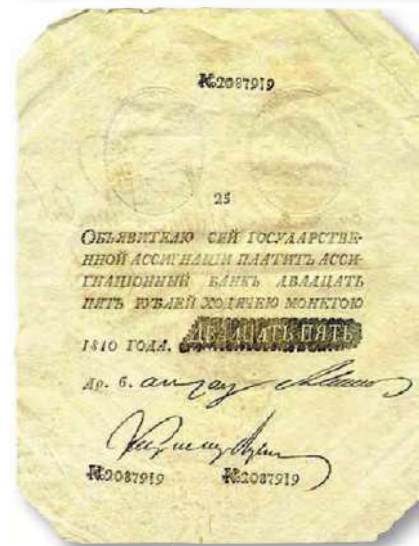 №2087919
25
ОБЪЯВИТЕЛЮ СЕЙ ГОСУДАРСТВЕ-
ННОЙ АССИГНАЦІИ ПЛАТИТЪ АССИ-
ГНАЦІОННЫЙ БАНКЪ ДВАДЦАТЬ
ПЯТЬ РУБЛЕЙ ХОДЯЧЕЮ МОНЕТОЮ
1810 ГОДА. ДВАДЦАТЬ ПЯТЬ
№2087919 №2087919